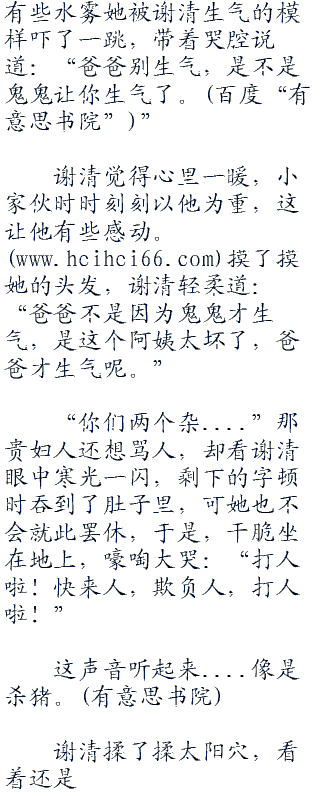 有些水雾她被谢清生气的模
样吓了一跳，带着哭腔说
道：“爸爸别生气，是不是
鬼鬼让你生气了。(百度“有
意思书院”)”
谢清觉得心里一暖，小
家伙时时刻刻以他为重，这
让他有些感动。
(www.hcihci66.com)摸了摸
她的头发，谢清轻柔道：
“爸爸不是因为鬼鬼才生
气，是这个阿姨太坏了，爸
爸才生气呢。”
“你们两个杂....”那
贵妇人还想骂人，却看谢清
眼中寒光一闪，剩下的字顿
时吞到了肚子里，可她也不
会就此罢休，于是，干脆坐
在地上，嚎啕大哭：“打人
啦！快来人，欺负人，打人
啦！”
这声音听起来....像是
杀猪。(有意思书院)
谢清揉了揉太阳穴，看
着还是